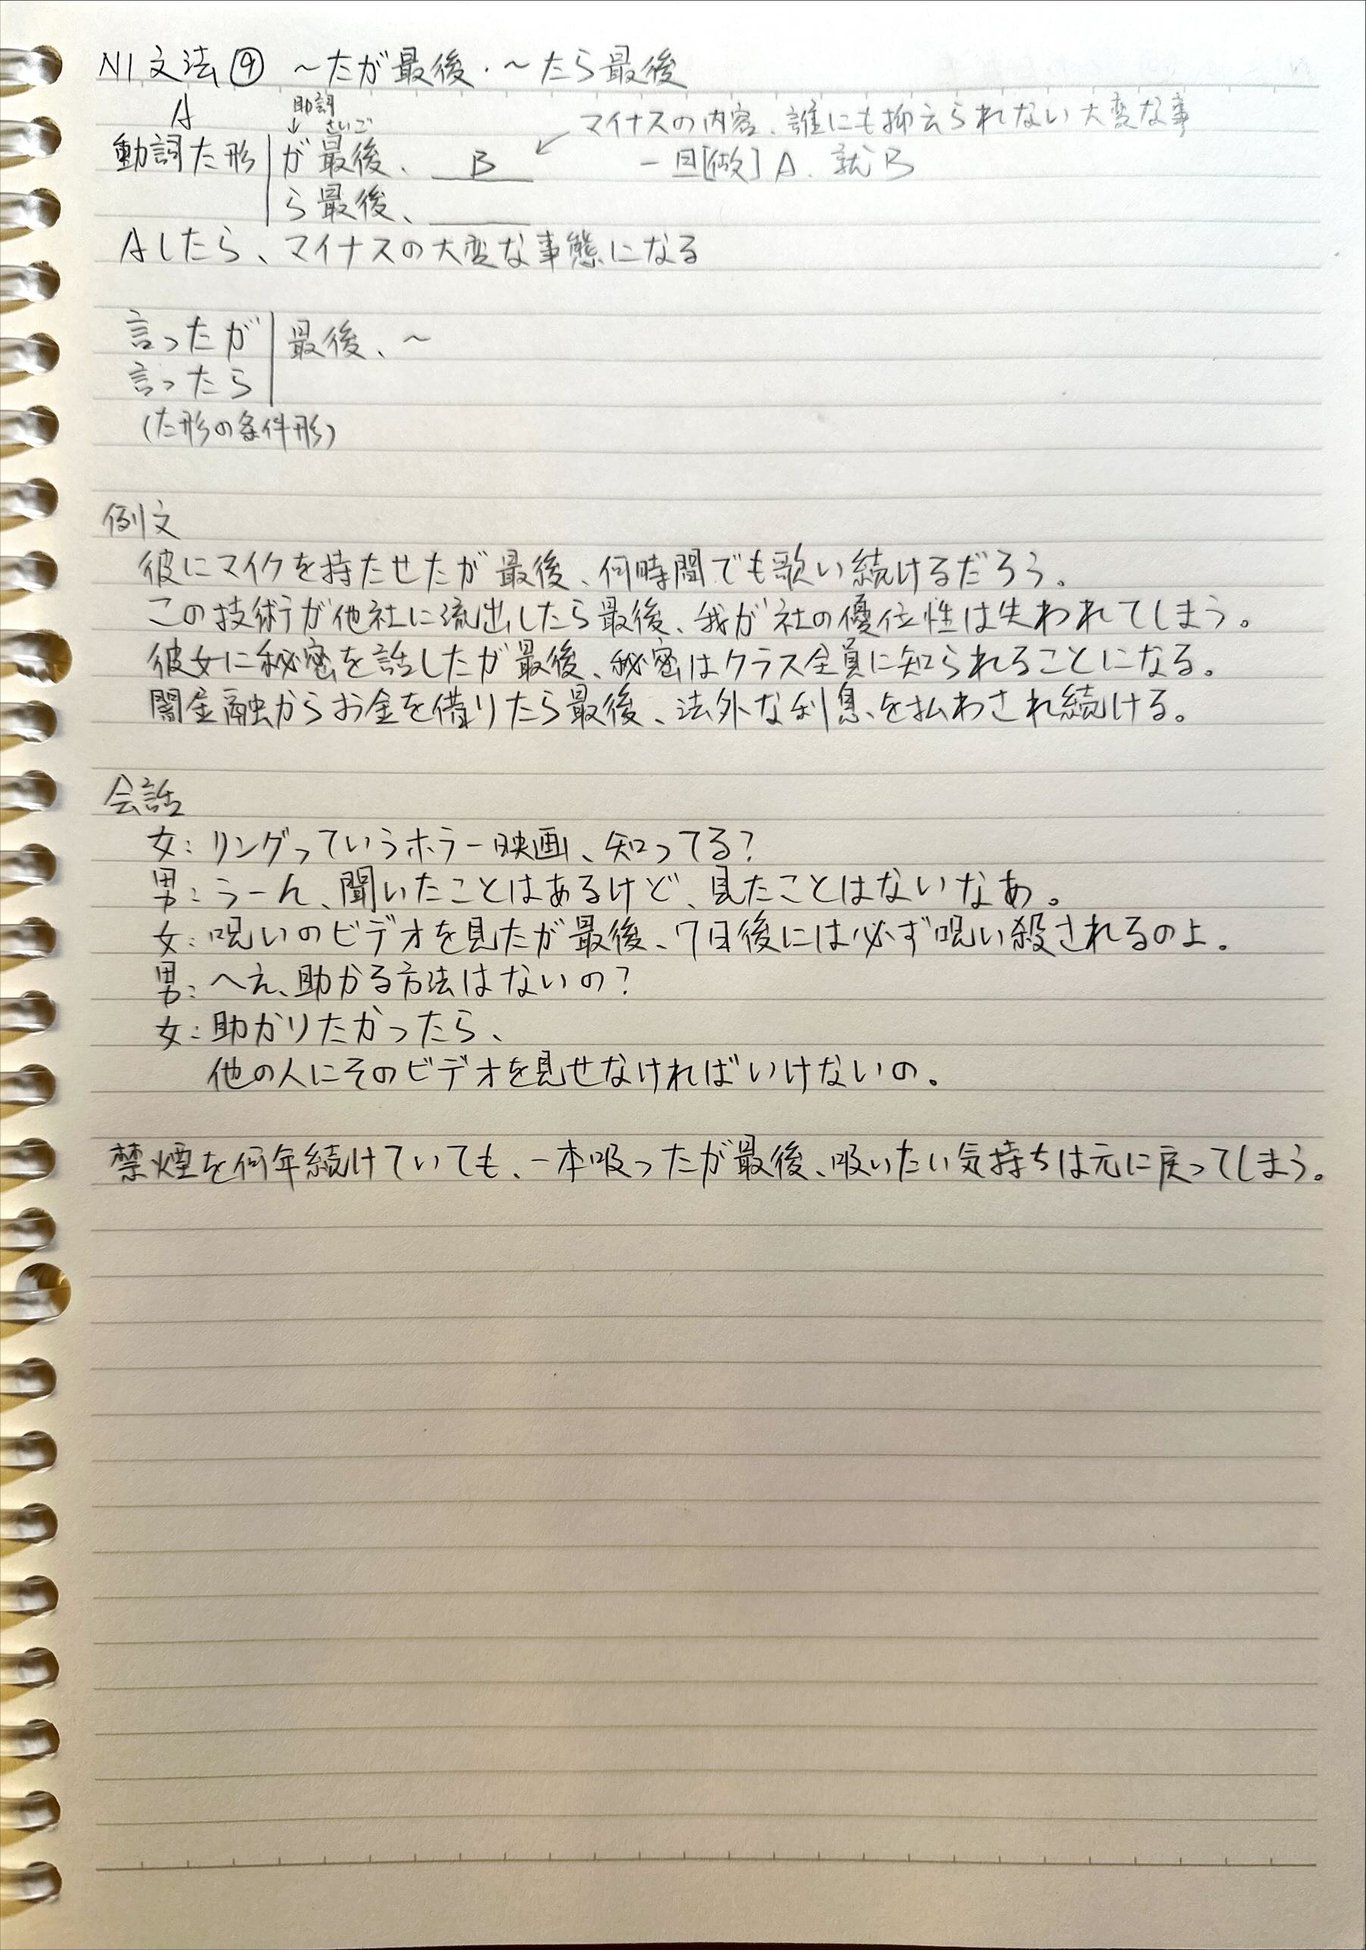 N1文法⑨ ～たが最後・～たら最後
A 助詞
動詞た形 が最後、 B マイナスの内容、誰にも抑えられない大変な事
さいご
ら最後、 一旦[做]A、就B
Aしたら、マイナスの大変な事態になる
言ったが 最後、～
言ったら
(た形の条件形)
例文
彼にマイクを持たせたが最後、何時間でも歌い続けるだろう。
この技術が他社に流出したら最後、我が社の優位性は失われてしまう。
彼女に秘密を話したが最後、秘密はクラス全員に知られることになる。
闇金融からお金を借りたら最後、法外な利息を払わされ続ける。
会話
女：リングっていうホラー映画、知ってる？
男：うーん、聞いたことはあるけど、見たことはないなあ。
女：呪いのビデオを見たが最後、7日後には必ず呪い殺されるのよ。
男：へえ、助かる方法はないの？
女：助かりたかったら、
他の人にそのビデオを見せなければいけないの。
禁煙を何年続けていても、一本吸ったが最後、吸いたい気持ちは元に戻ってしまう。